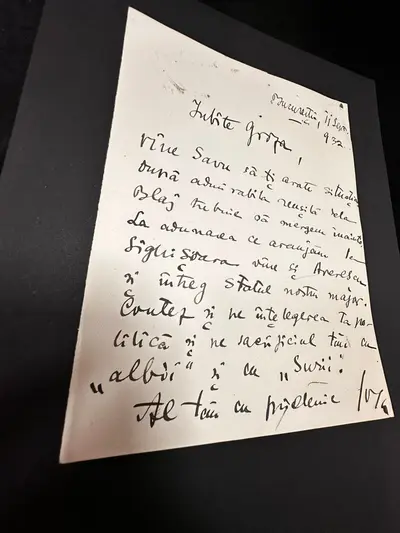 București, 11 Sept.
932
Iubite Groza,
Vine Savu să-ți arate situația
După admirabila reușită dela
Blaj trebuie să mergem înainte
La adunarea ce aranjăm la
Sighișoara vine și Averescu
și întreg statul nostru major.
Contez și pe înțelegerea ta po-
litică și pe sacrificiul tău cu
"albii" și cu "Surii".
Al tău cu prietenie